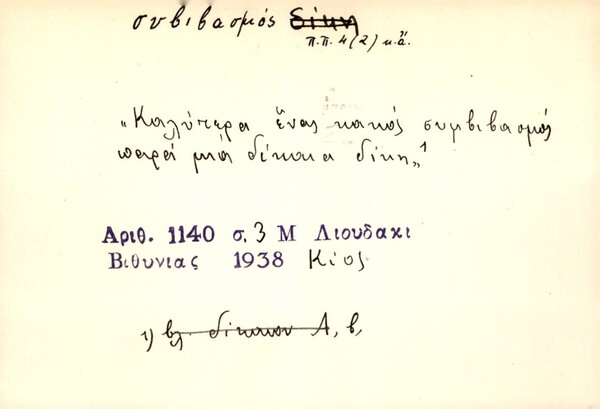 συβιβασμός δίκη
π.π. 4 (2) κ.ἄ.
„Καλύτερα ἕνας κακός συμβιβασμός
παρά μιά δίκαια δίκη„¹
Αριθ. 1140 σ. 3 Μ Λιουδακι
Βιθυνιας 1938 Κίος
1) βλ. δίκαιον Α, β,